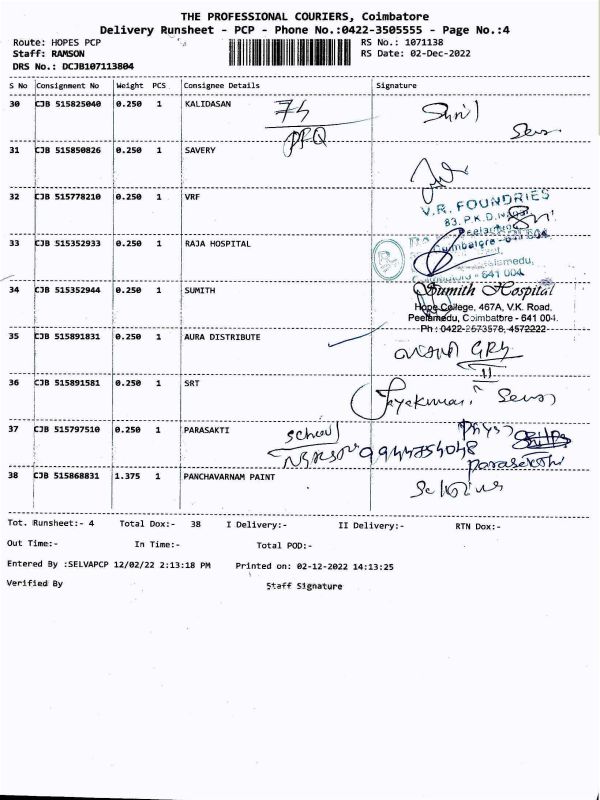 THE PROFESSIONAL COURIERS, Coimbatore
Delivery Runsheet - PCP - Phone No.:0422-3505555 - Page No.:4
Route: HOPES PCP RS No.: 1071138
Staff: RAMSON RS Date: 02-Dec-2022
DRS No.: DCJB107113804
S No Consignment No Weight PCS Consignee Details Signature
30 CJB 515825040 0.250 1 KALIDASAN
31 CJB 515850826 0.250 1 SAVERY
32 CJB 515778210 0.250 1 VRF
V.R. FOUNDRIES
83, P.K.D.
33 CJB 515352933 0.250 1 RAJA HOSPITAL
641 004
34 CJB 515352944 0.250 1 SUMITH Sumith Hospital
Hope College, 467A, V.K. Road,
Peelamedu, Coimbatore - 641 004.
Ph : 0422-2573578, 4572222
35 CJB 515891831 0.250 1 AURA DISTRIBUTE
36 CJB 515891581 0.250 1 SRT Jayakumar
37 CJB 515797510 0.250 1 PARASAKTI school
38 CJB 515868831 1.375 1 PANCHAVARNAM PAINT
Tot. Runsheet:- 4 Total Dox:- 38 I Delivery:- II Delivery:- RTN Dox:-
Out Time:- In Time:- Total POD:-
Entered By :SELVAPCP 12/02/22 2:13:18 PM Printed on: 02-12-2022 14:13:25
Verified By Staff Signature